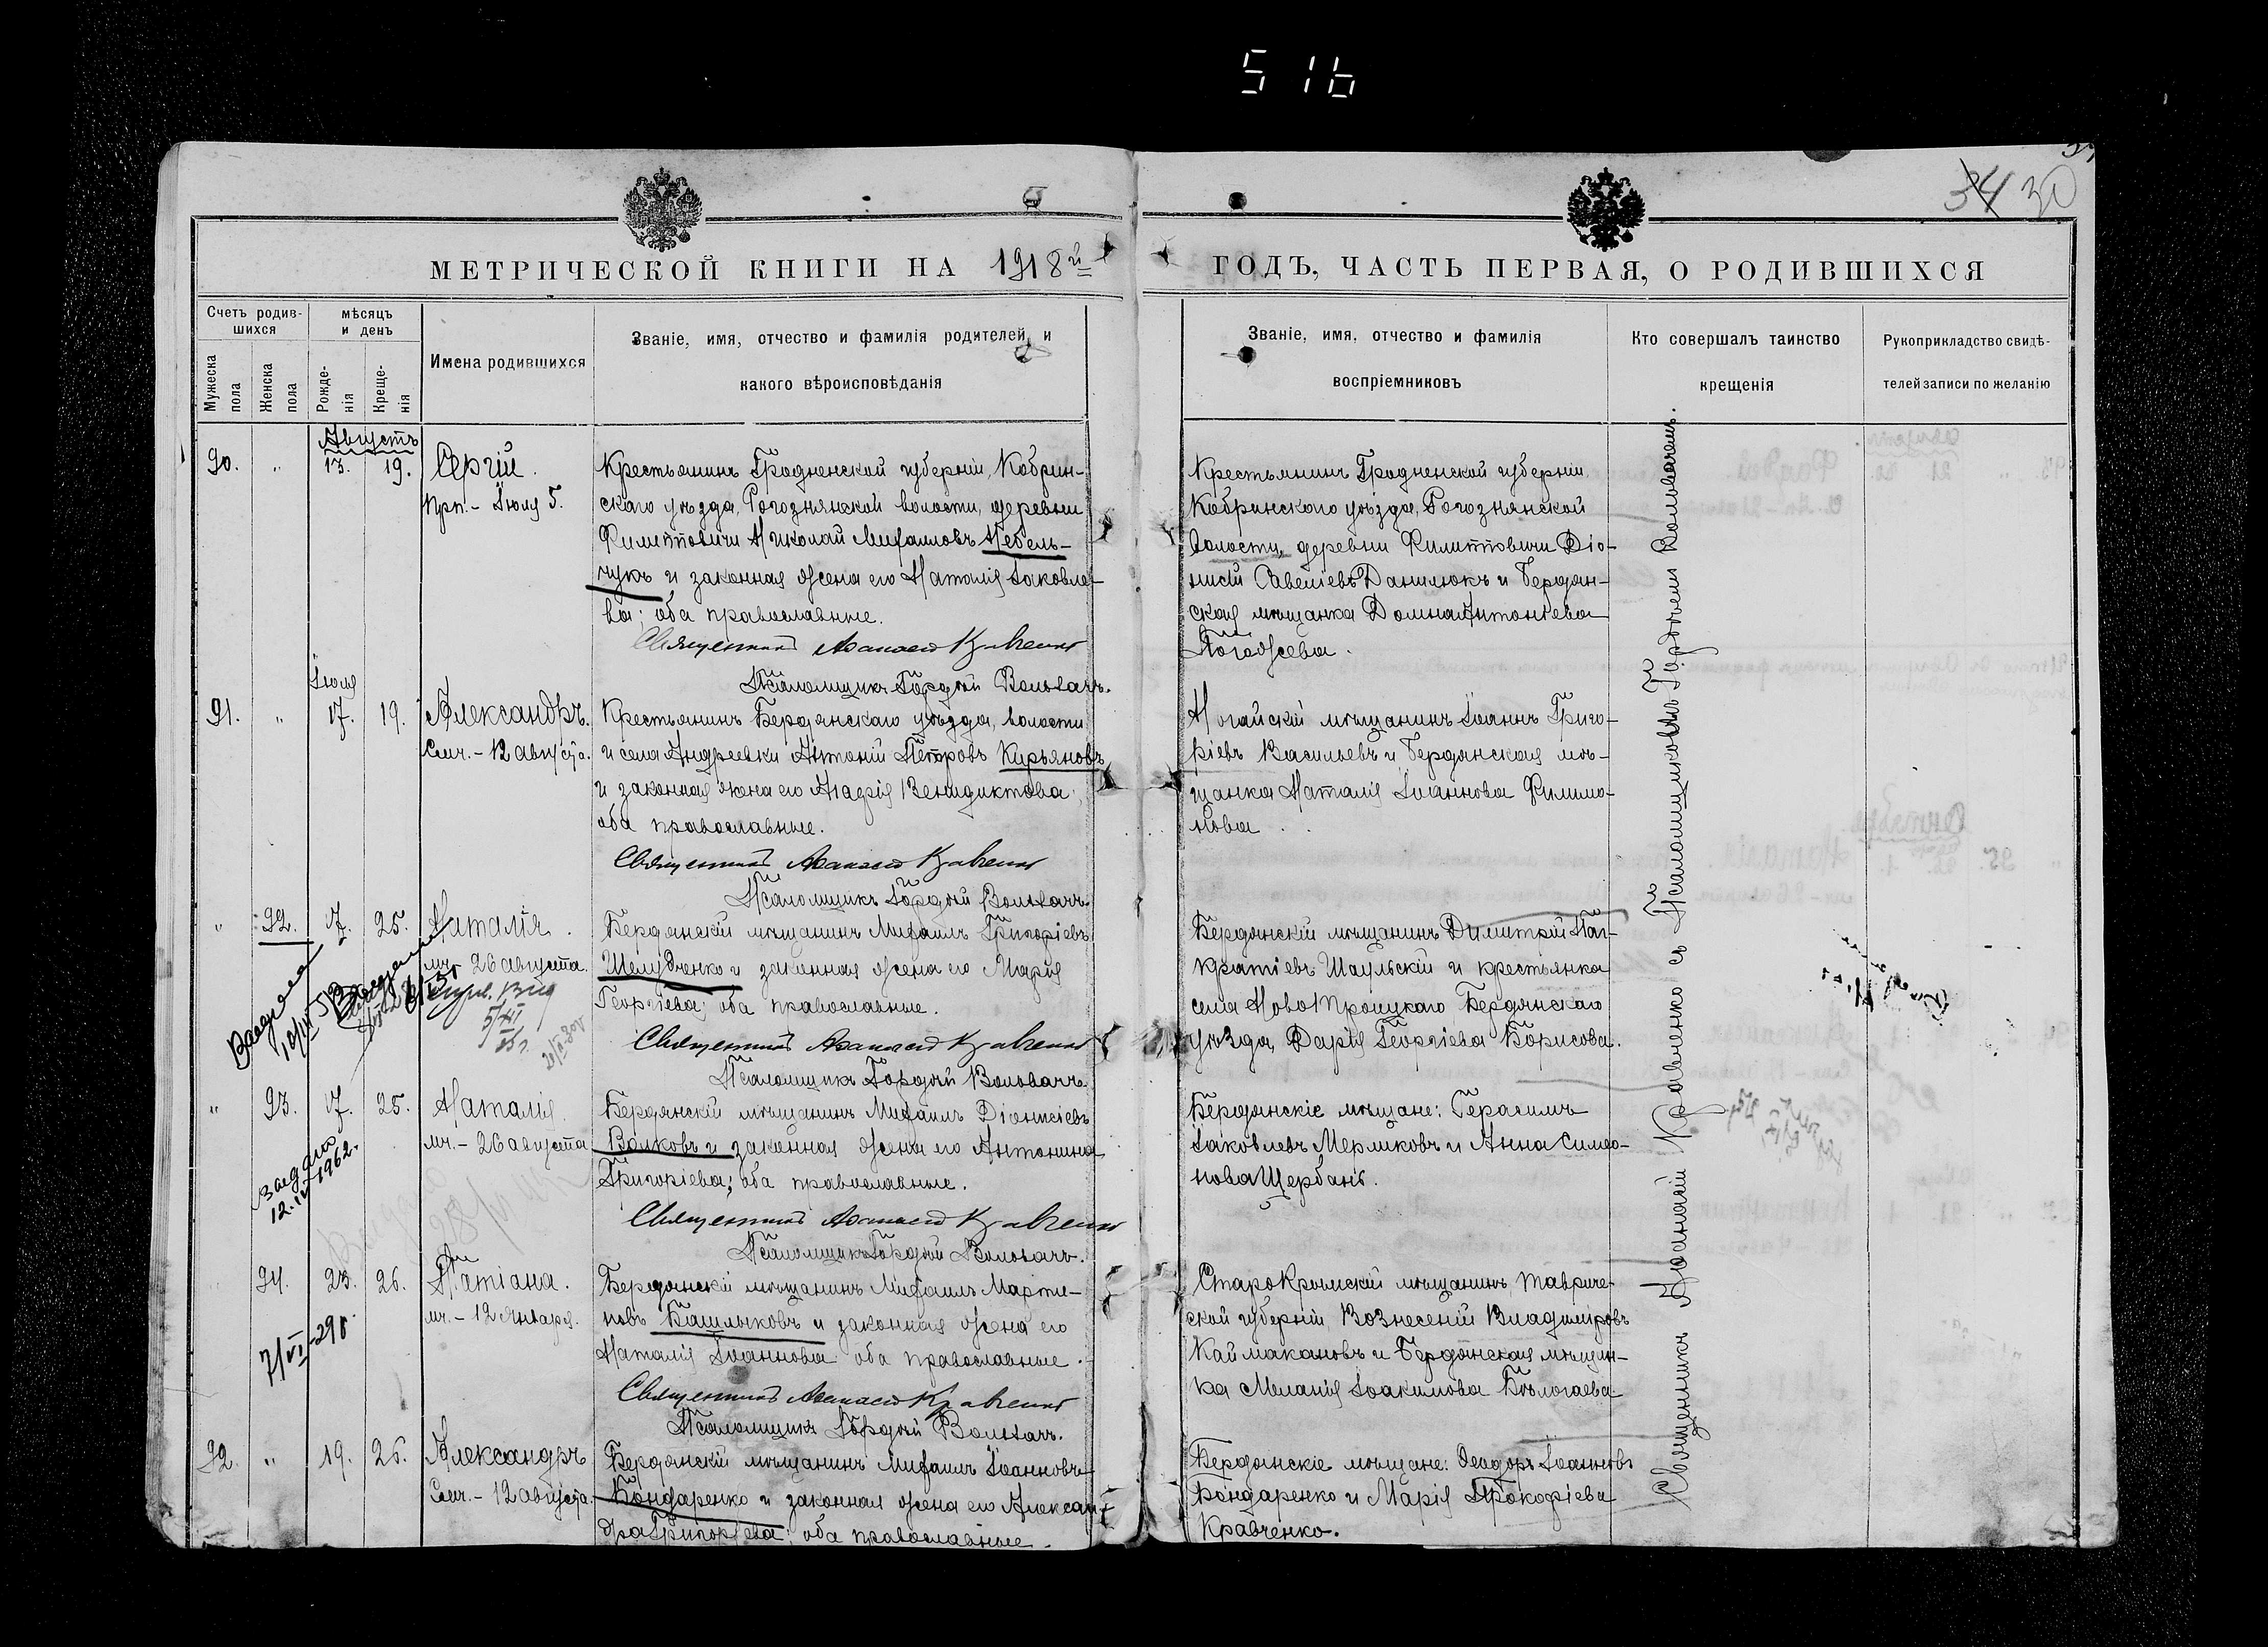 516
34 30
МЕТРИЧЕСКОЙ КНИГИ НА 1918й ГОДЪ, ЧАСТЬ ПЕРВАЯ, О РОДИВШИХСЯ
Счетъ родив-
шихся
Мужеска пола
Женска пола
мѣсяцъ
и день
Рожде-
нія
Креще-
нія
Имена родившихся
Званіе, имя, отчество и фамилія родителей, и
какого вѣроисповѣданія
Званіе, имя, отчество и фамилія
воспріемниковъ
Кто совершалъ таинство
крещенія
Рукоприкладство свидѣ-
телей записи по желанію
Августъ
90. " 13. 19. Сергій.
Прп. - Іюля 5.
Крестьянинъ Гродненской губерніи, Кобрин-
скаго уѣзда, Рогознянской волости, деревни
Филипповичи Николай Михаиловъ Небель-
чукъ и законная жена его Наталія Іаковле-
ва; оба православные.
Священникъ Афанасій Кравченко
Псаломщикъ Гордій Воловачъ.
Крестьянинъ Гродненской губерніи
Кобринскаго уѣзда, Рогознянской
волости, деревни Филипповичи Діо-
нисій Савеліевъ Данилюкъ и Бердян-
ская мѣщанка Домна Антоніева
Погожева.
Іюля
91. " 17. 19. Александръ.
Смч. - 12 августа.
Крестьянинъ Бердянскаго уѣзда, волости
и села Андреевки Антоній Петровъ Курьяновъ
и законная жена его Марія Венедиктова;
оба православные.
Священникъ Афанасій Кравченко
Псаломщикъ Гордій Воловачъ.
Ногайскій мѣщанинъ Іоаннъ Григо-
ріевъ Васильевъ и Бердянская мѣ-
щанка Наталія Іоаннова Филимо-
нова.
" 92. 17. 25. Наталія.
мч. 26 августа.
Бердянскій мѣщанинъ Михаилъ Григоріевъ
Шелудченко и законная жена его Марія
Георгіева; оба православные.
Священникъ Афанасій Кравченко
Псаломщикъ Гордій Воловачъ.
Бердянскій мѣщанинъ Димитрій Пан-
кратіевъ Шаульскій и крестьянка
села Ново Троицкаго Бердянскаго
уѣзда, Дарія Георгіева Борисова.
" 93. 17. 25. Наталія.
мч. - 26 августа
выдано
12.IV 1962.
Бердянскій мѣщанинъ Михаилъ Діонисіевъ
Волковъ и законная жена его Антонина
Григоріева; оба православные.
Священникъ Афанасій Кравченко
Псаломщикъ Гордій Воловачъ.
Бердянскіе мѣщане: Герасимъ
Іаковлевъ Мерликовъ и Анна Симео-
нова Щербань.
94. 23. 26. Татіана.
мч. - 12 Января.
7/VI-29г.
Бердянскій мѣщанинъ Михаилъ Марти-
новъ Башлыковъ и законная жена его
Наталія Іоаннова оба православные.
Священникъ Афанасій Кравченко
Псаломщикъ Гордій Воловачъ.
СтароКрымскій мѣщанинъ, Тавриче-
ской губерніи, Вознесеній Владиміровъ
Каймакановъ и Бердянская мѣщан-
ка Меланія Іоакимова Бологаева
92. " 19. 26. Александръ
Смч. - 12 августа.
Бердянскій мѣщанинъ Михаилъ Іоанновъ
Бондаренко и законная жена его Алексан-
дра Григорьева; оба православные.
Бердянскіе мѣщане: Ѳеодоръ Іоанновъ
Бондаренко и Марія Прокофіева
Кравченко.
Священникъ Афанасій Кравченко съ Псаломщикомъ Гордіемъ Воловачемъ.